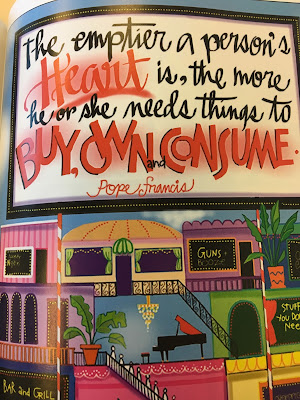 The emptier a person's
Heart is, the more
he or she needs things to
BUY, OWN and CONSUME.
Pope Francis
GUNS
STUFF
YOU DON
NEE
BAR AND GRILL